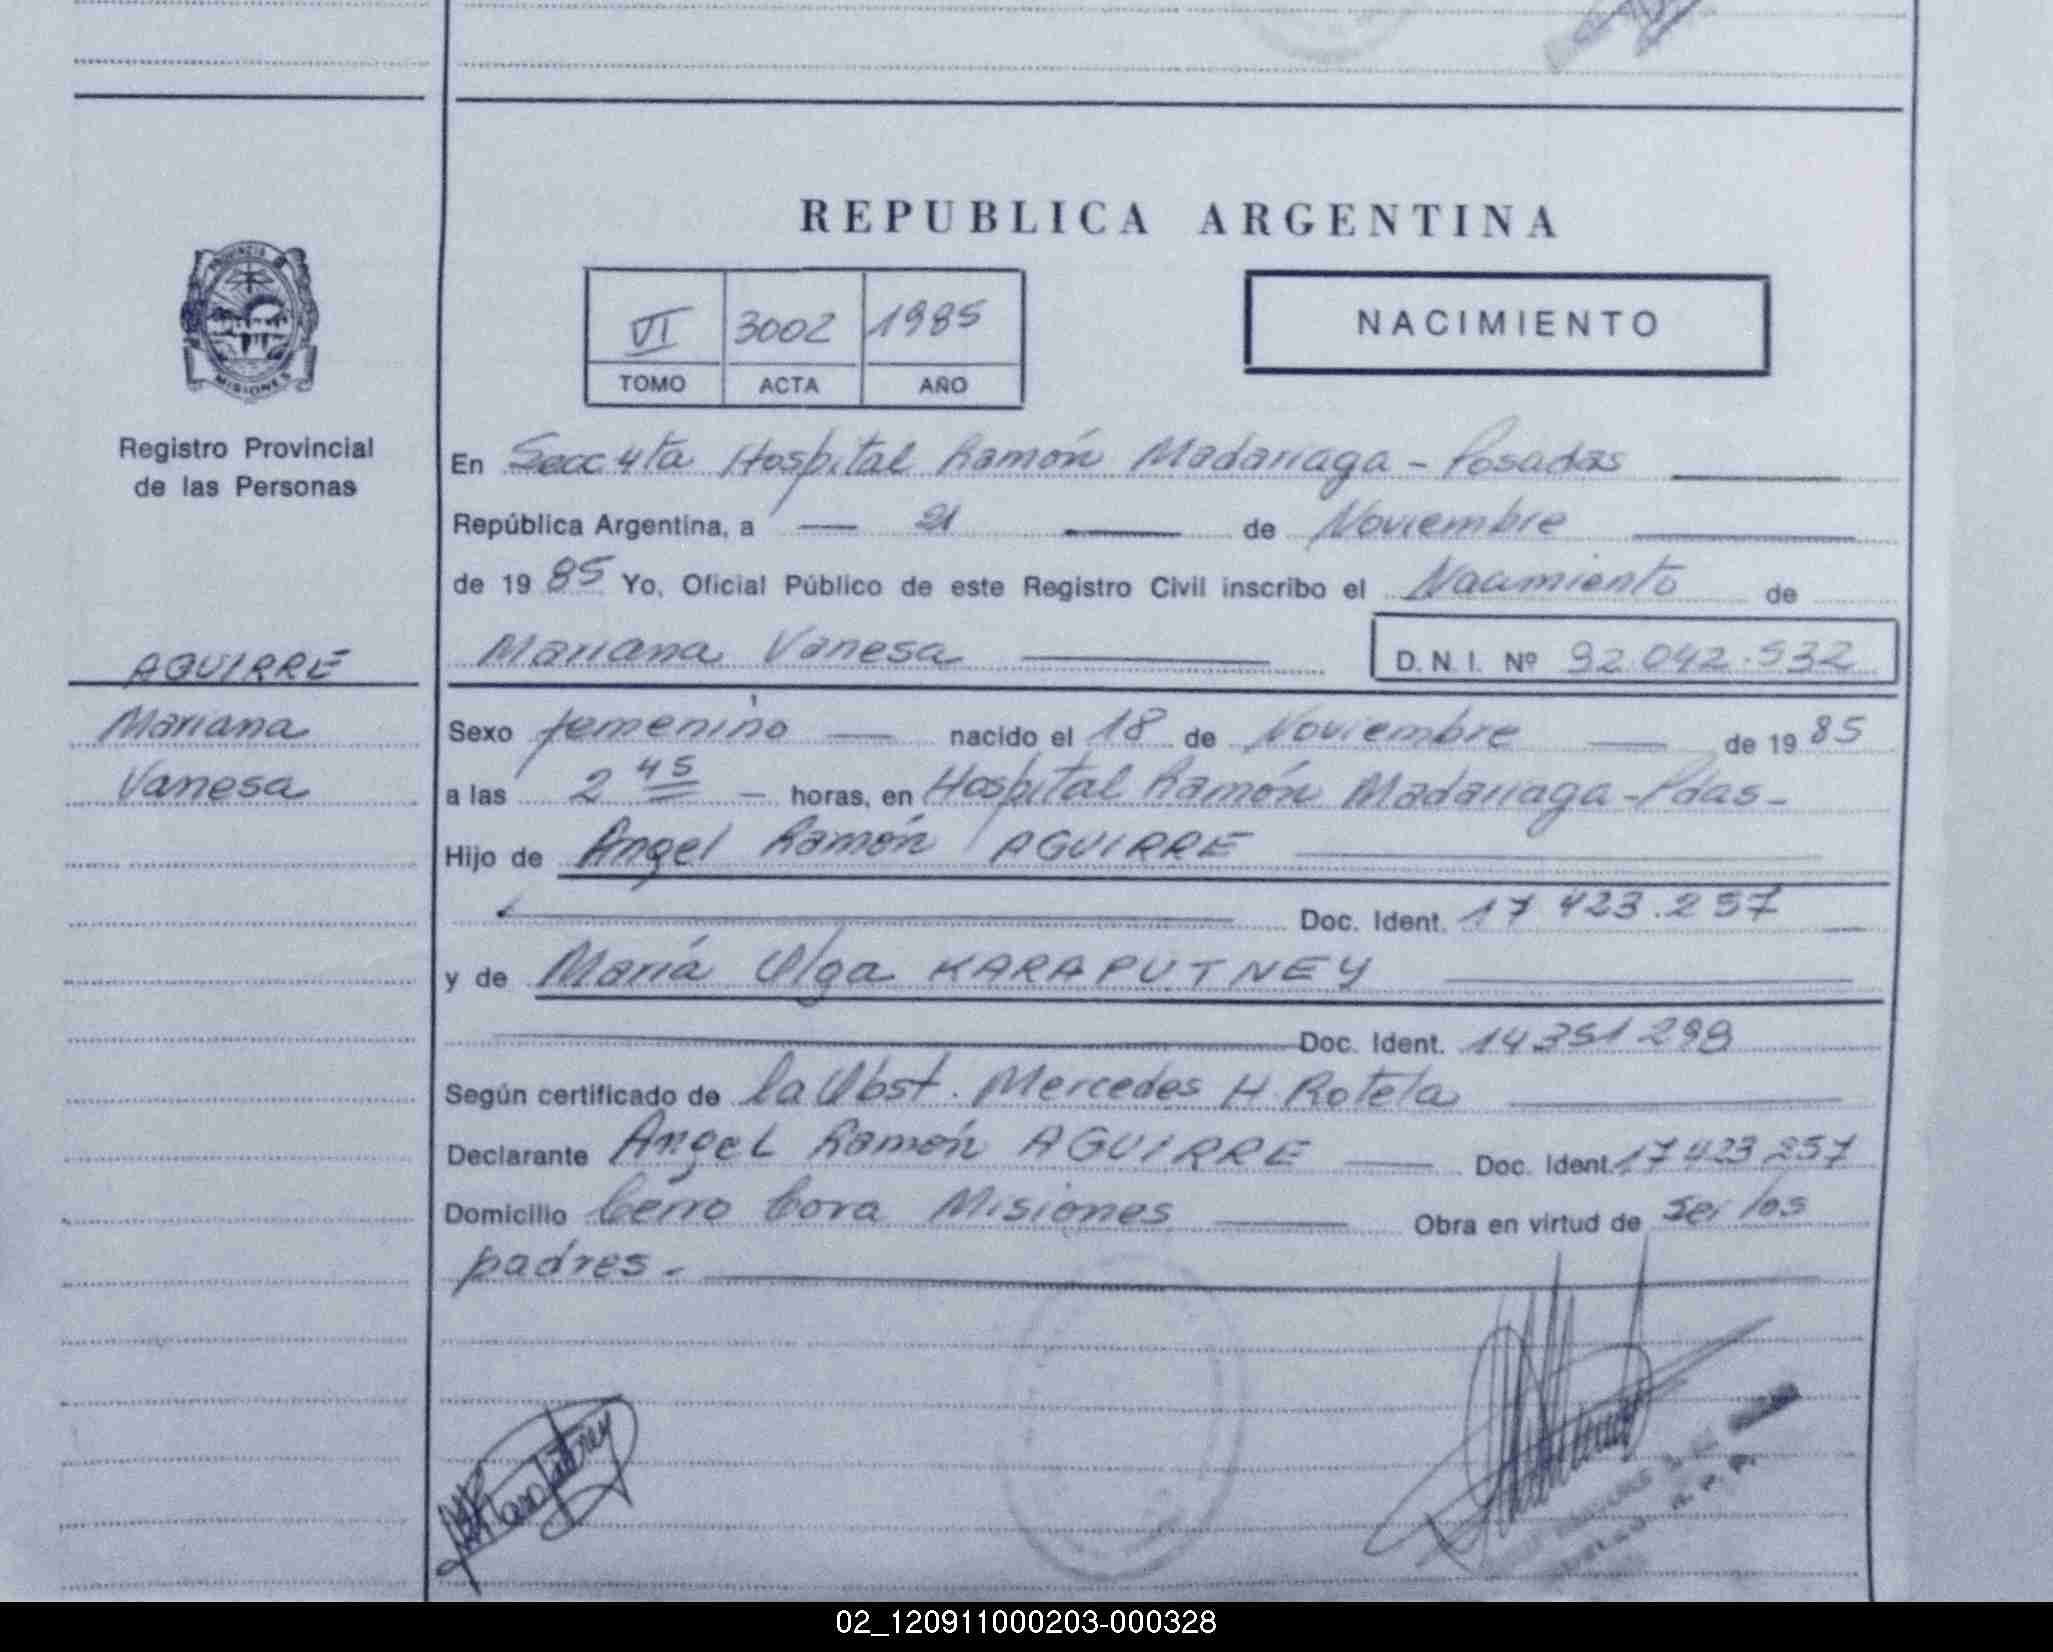 REPUBLICA ARGENTINA
PROVINCIA DE
MISIONES
Registro Provincial
de las Personas
VI 3002 1985
TOMO ACTA AÑO
NACIMIENTO
En Secc 4ta Hospital Ramón Madariaga - Posadas
República Argentina, a 21 de Noviembre
de 1985 Yo, Oficial Público de este Registro Civil inscribo el Nacimiento de
Mariana Vanesa D.N.I. Nº 92.042.532
AGUIRRE
Mariana
Vanesa
Sexo femenino nacido el 18 de Noviembre de 1985
a las 2 45 - horas, en Hospital Ramón Madariaga - Pdas -
Hijo de Angel Ramón AGUIRRE
Doc. Ident. 17 423.257
y de María Olga KARAPUTNEY
Doc. Ident. 14 351 299
Según certificado de la Obst. Mercedes H. Rotela
Declarante Angel Ramón AGUIRRE Doc. Ident. 17 423 257
Domicilio Cerro Cora Misiones Obra en virtud de ser los
padres.
02_120911000203-000328